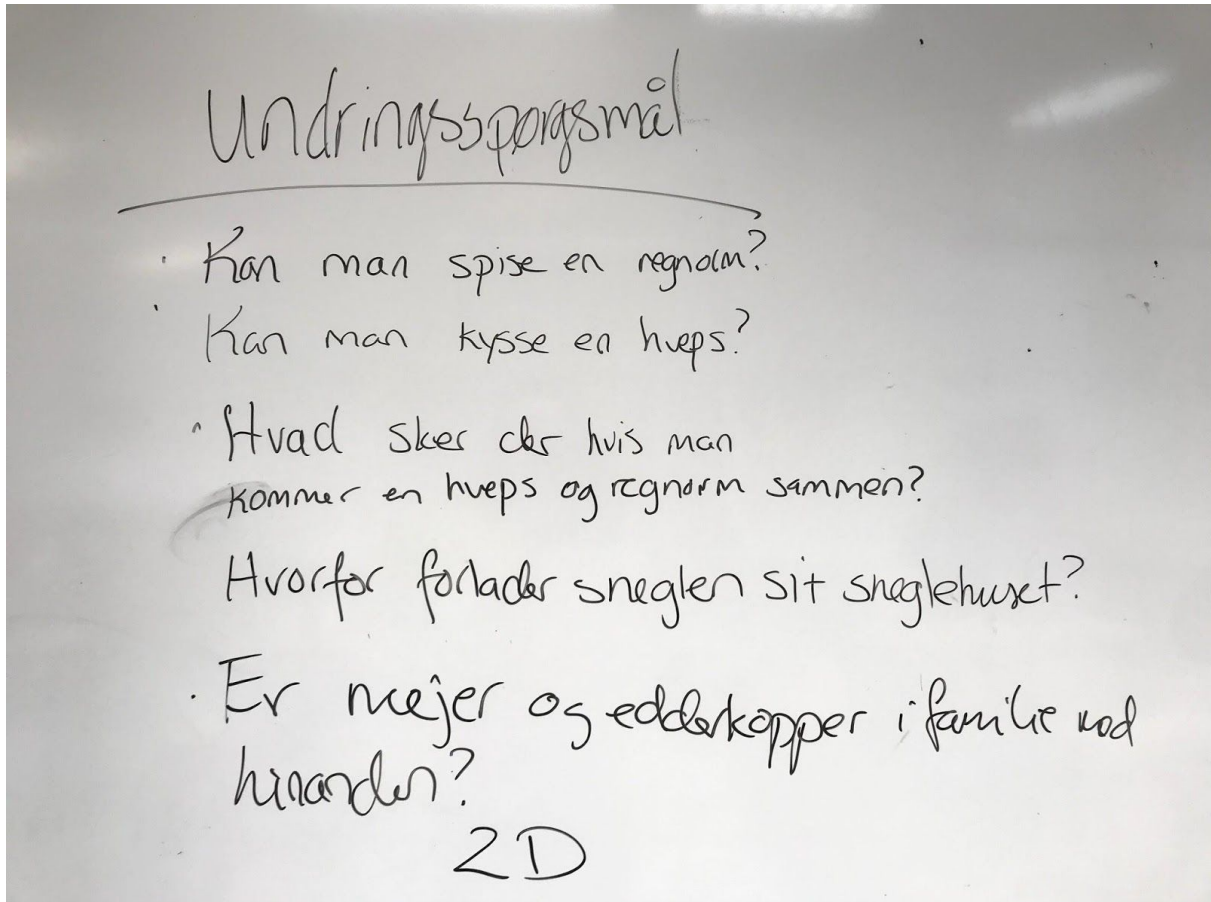 Undringsspørgsmål
· Kan man spise en regnorm?
· Kan man kysse en hveps?
· Hvad sker der hvis man
kommer en hveps og regnorm sammen?
Hvorfor forlader sneglen sit sneglehuset?
· Er mejer og edderkopper i familie med
hinanden?
2D